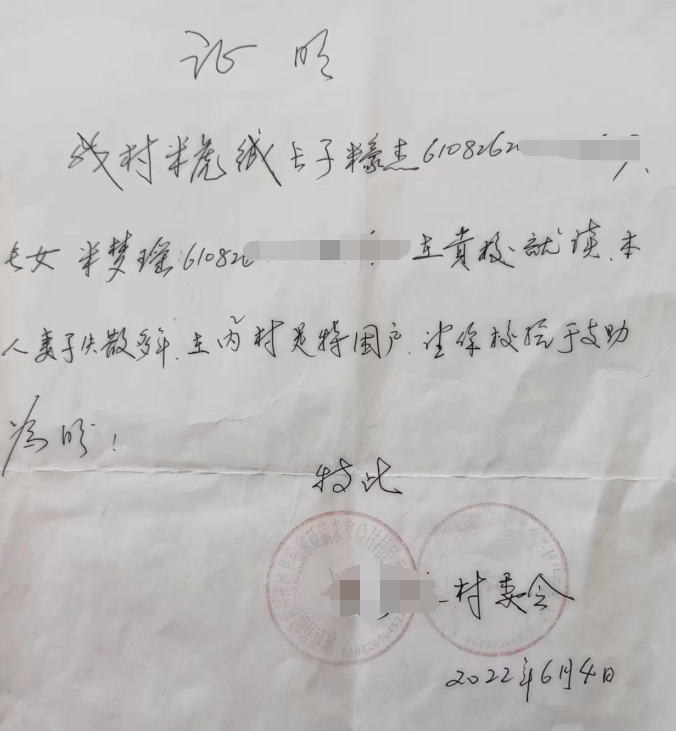 证明
我村米虎绒长子米豪杰6108262
长女米梦瑶610826 在贵校就读.本
人妻子失散多年.在内村是特困户.望你校给于支助
为盼!
特此
村委会
2022年6月4日